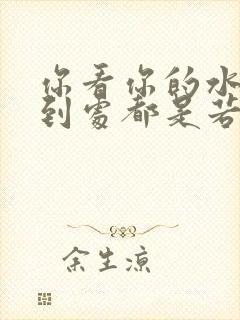 你看你的水
到處都是若
余生凉